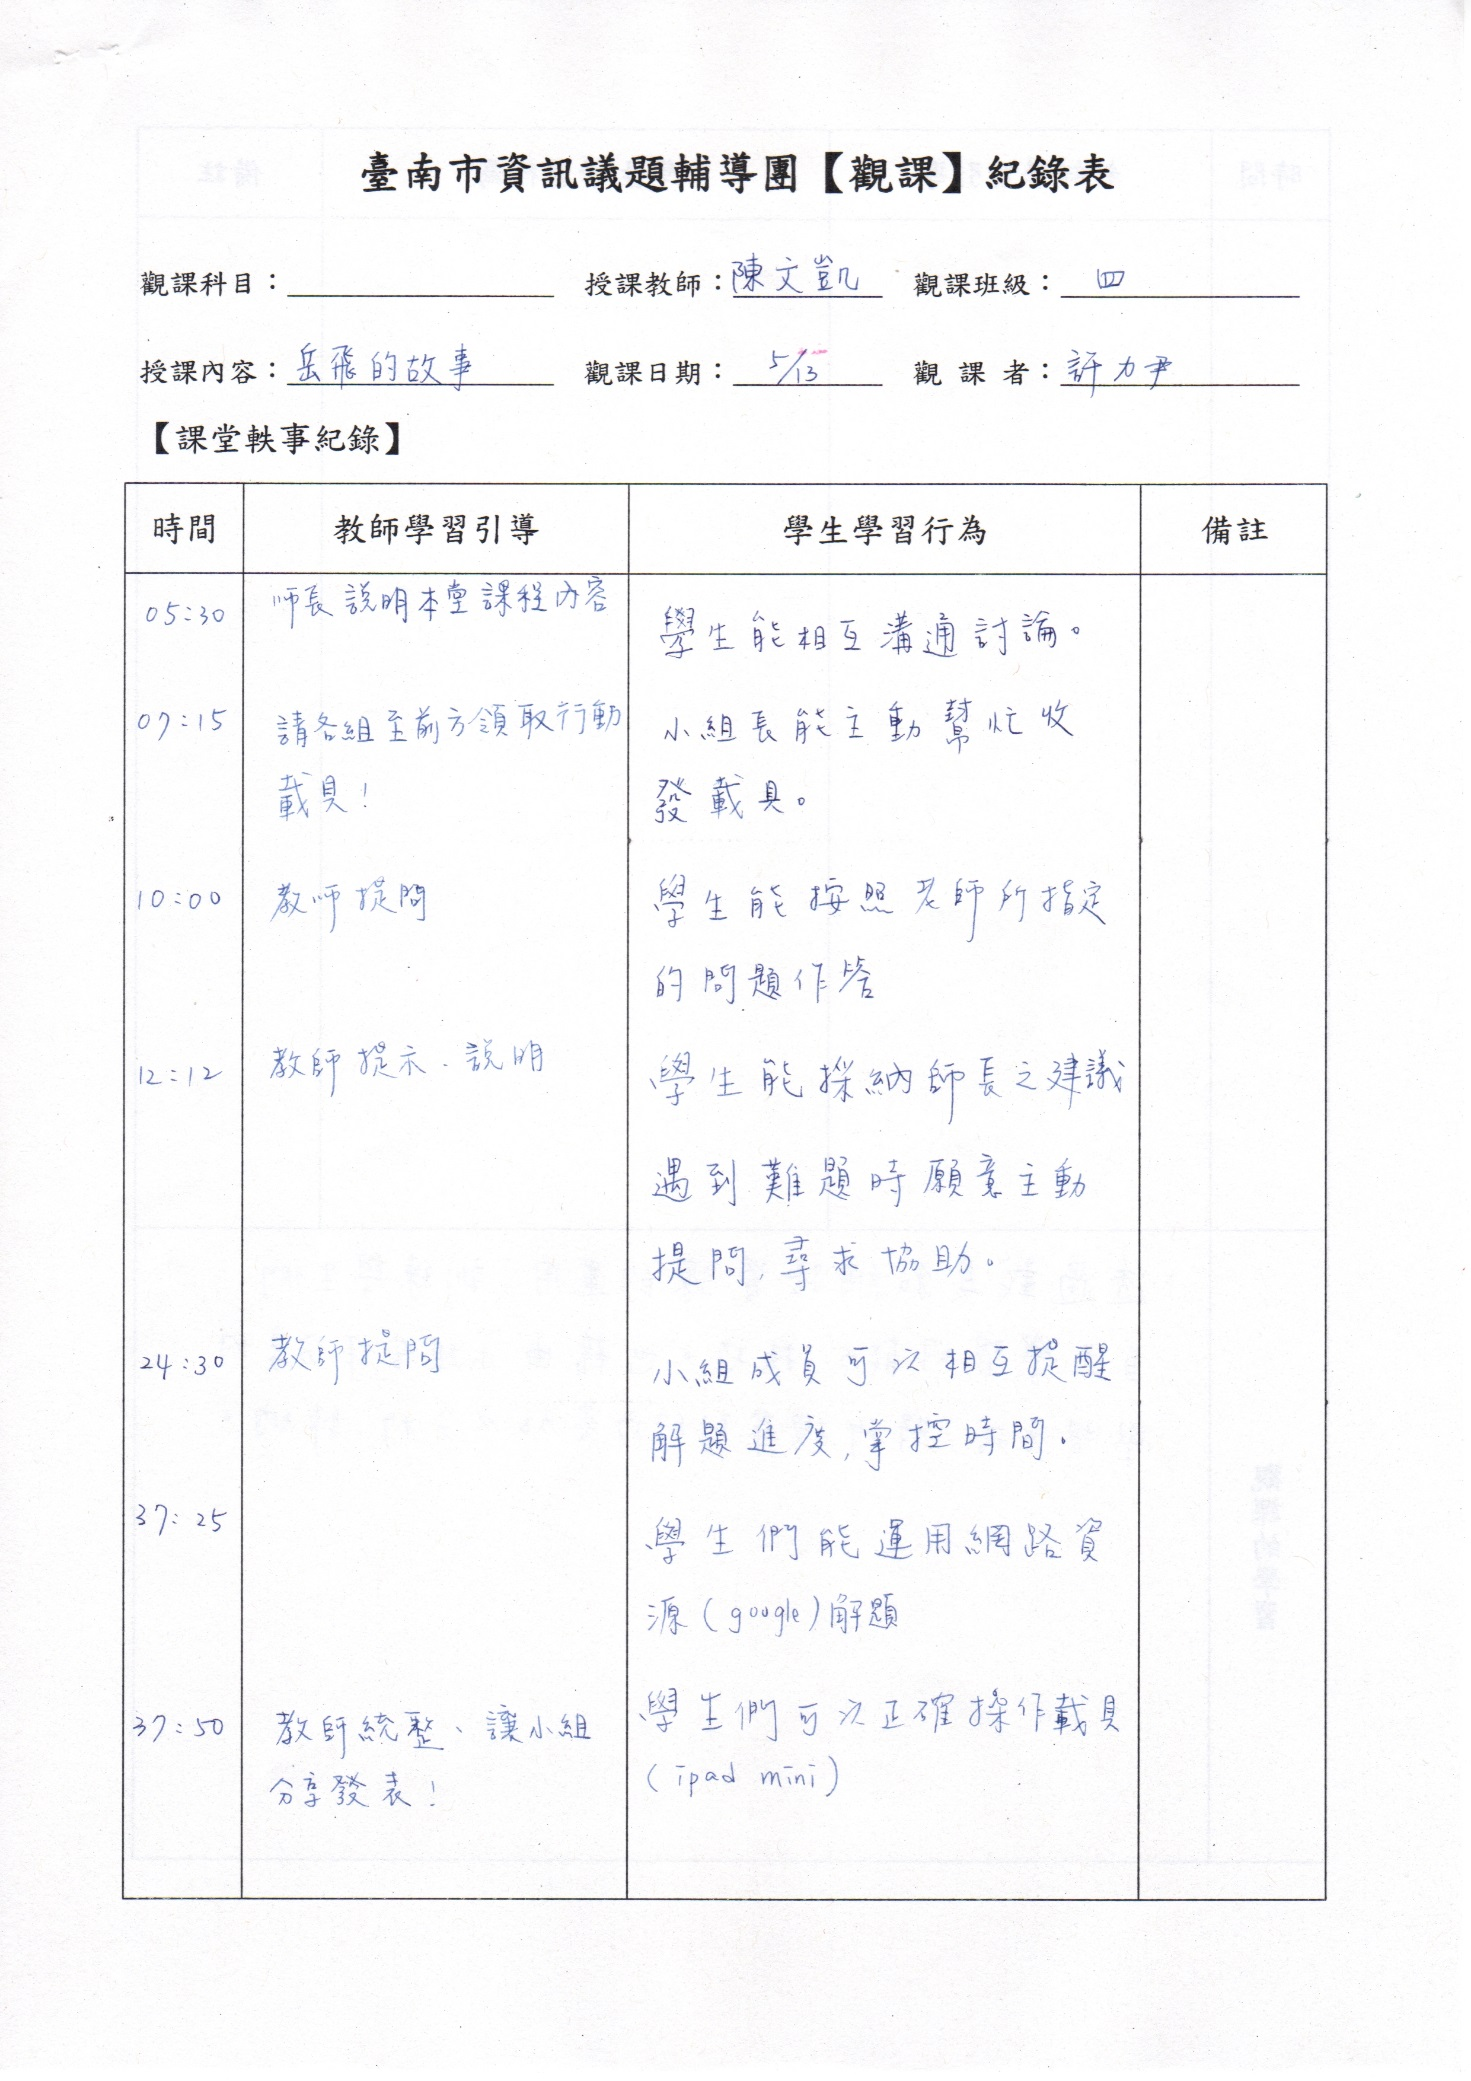 臺南市資訊議題輔導團【觀課】紀錄表
觀課科目： 授課教師：陳文凱 觀課班級：四
授課內容：岳飛的故事 觀課日期：5/13 觀課者：許力尹
【課堂軼事紀錄】
時間 教師學習引導 學生學習行為 備註
05:30 師長說明本堂課程內容 學生能相互溝通討論。
07:15 請各組至前方領取行動 小組長能主動幫忙收
載具! 發載具。
10:00 教師提問 學生能按照老師所指定
的問題作答
12:12 教師提示、說明 學生能採納師長之建議
遇到難題時願意主動
提問,尋求協助。
24:30 教師提問 小組成員可以相互提醒
解題進度,掌控時間。
37:25 學生們能運用網路資
源(google)解題
37:50 教師統整、讓小組 學生們可以正確操作載具
分享發表! (ipad mini)